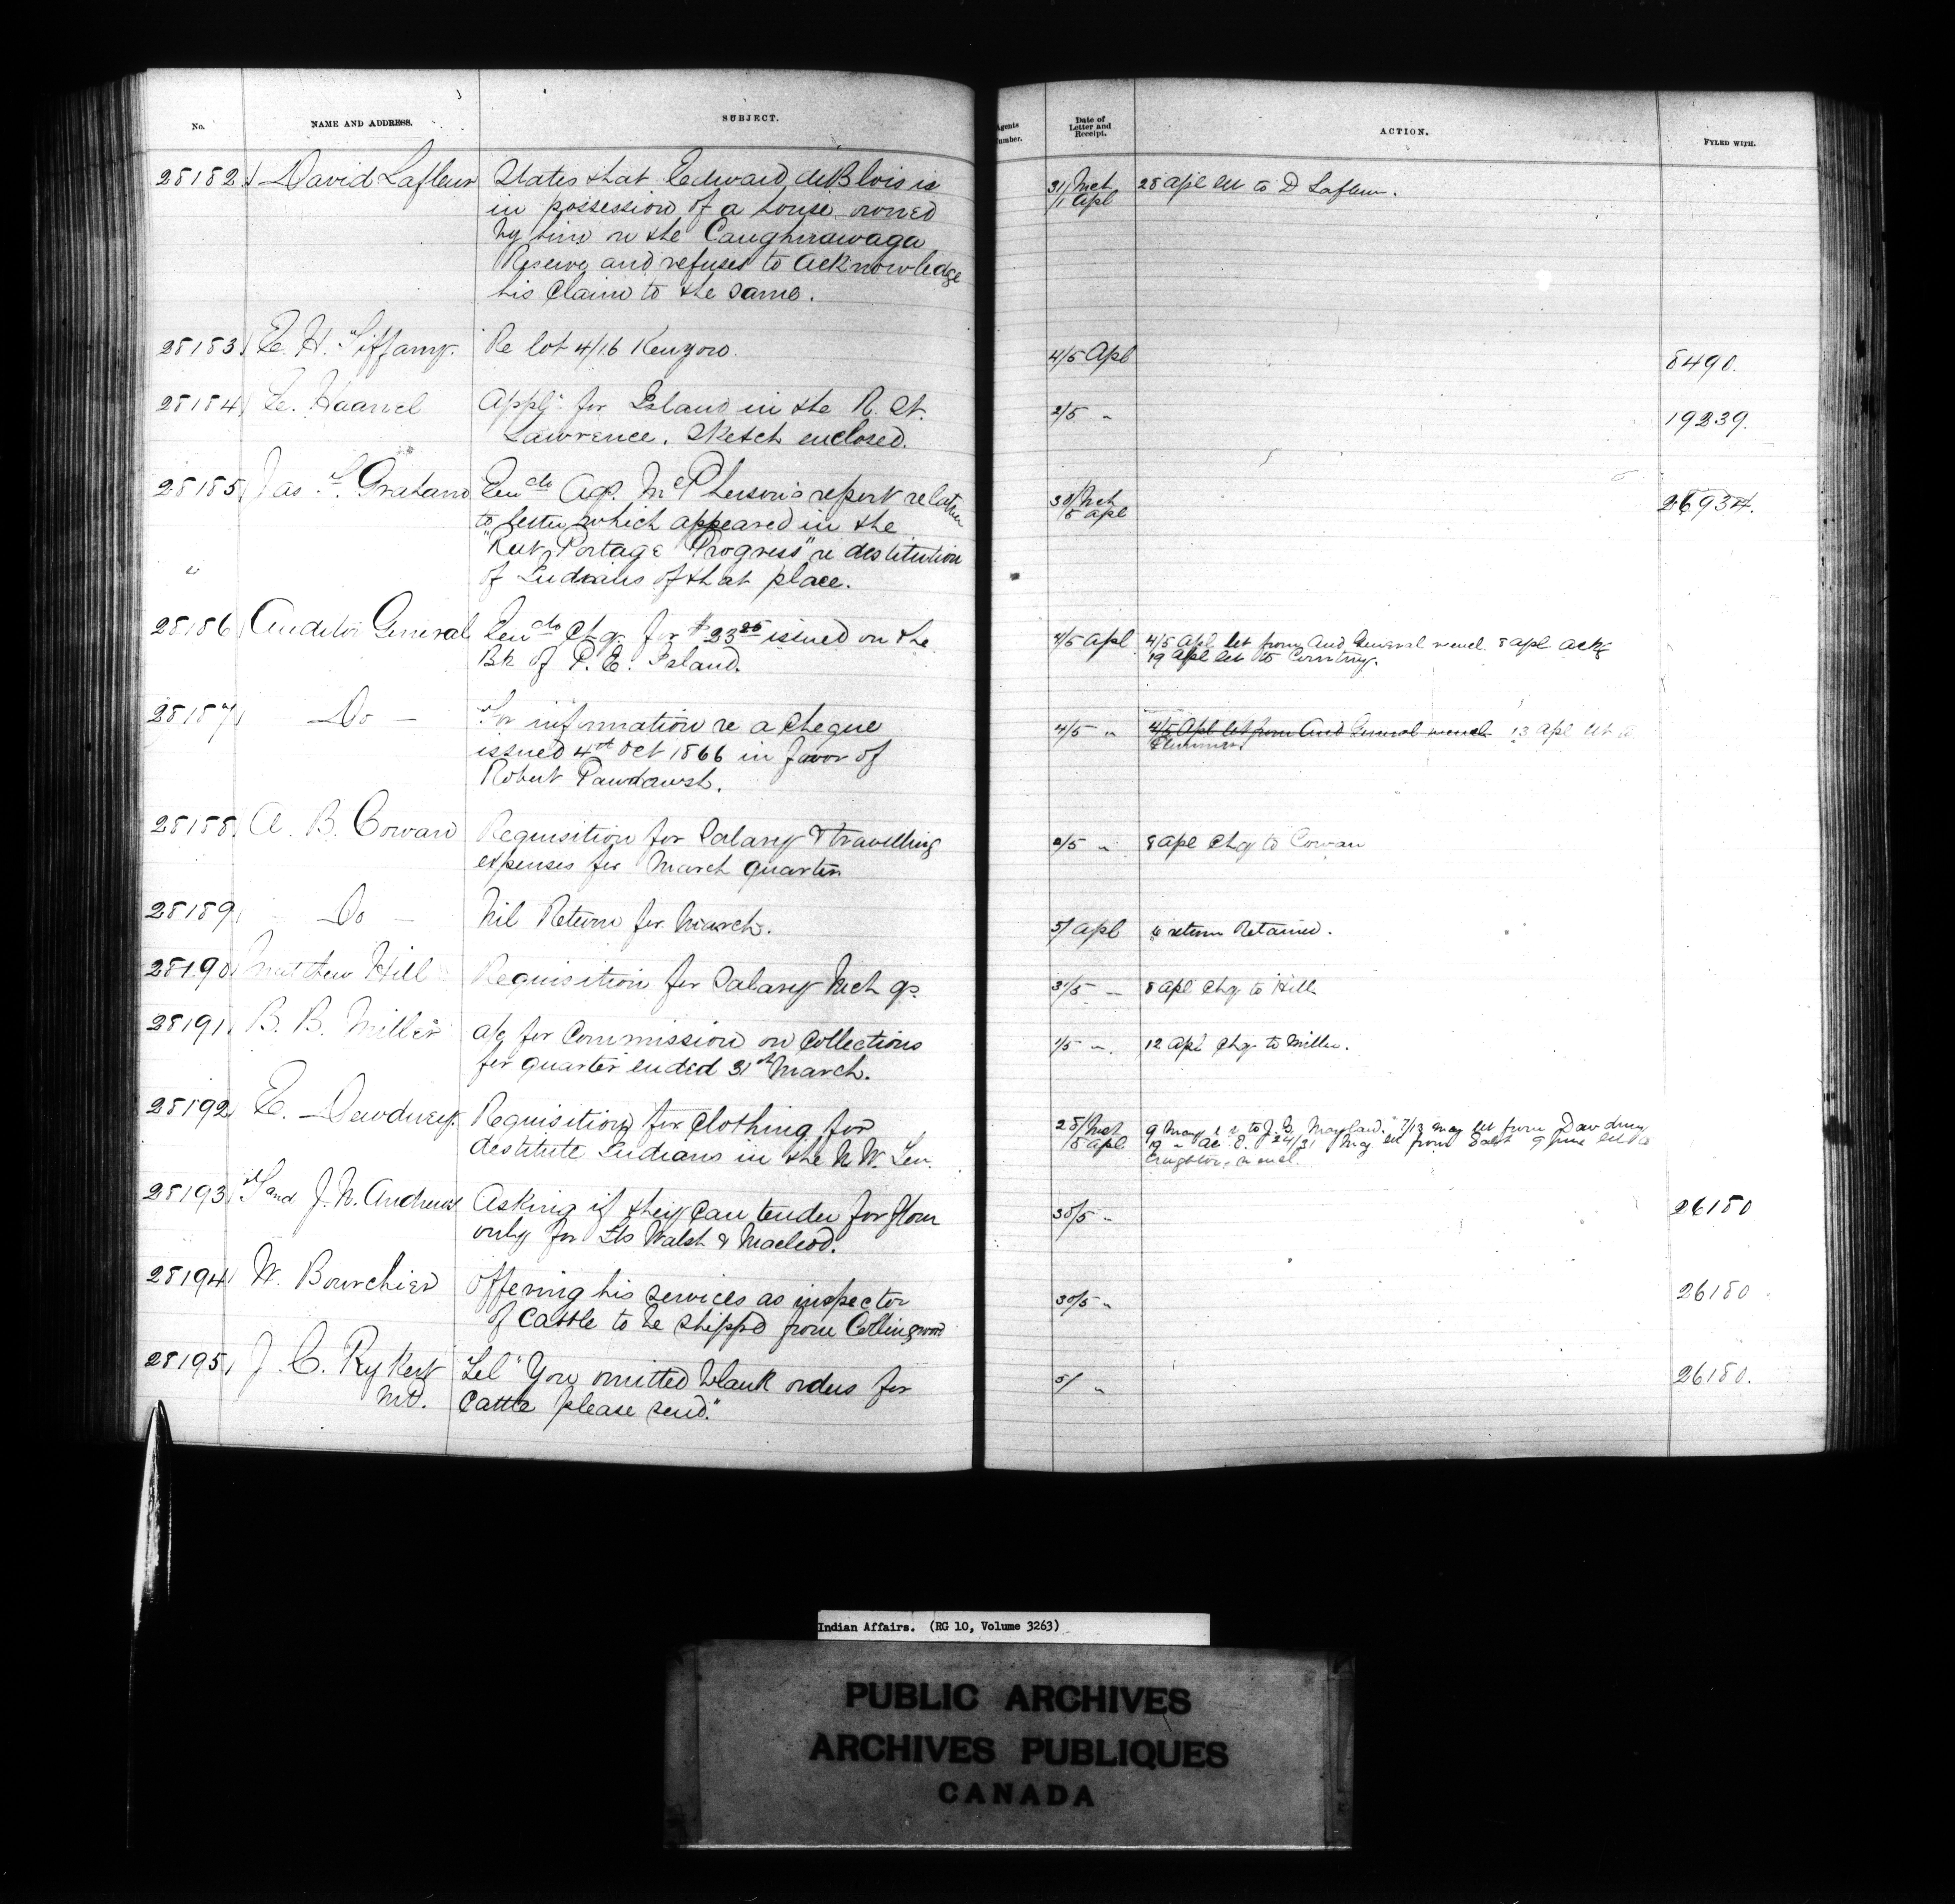 No. NAME AND ADDRESS. SUBJECT. Agents Number. Date of Letter and Receipt. ACTION. FYLED WITH.
28182 David Lafleur States that Edward deBlois is 31/Mch 28 Apl let to D Lafleur.
in possession of a house owned 1 Apl
by him on the Caughnawaga
Reserve and refuses to acknowledge
his claim to the same.
28183 E. H. Tiffany. Re lot 4/16 Kenyon. 4/5 Apl 8490.
28184 E. Haanel Appln for Island in the R. St. 2/5 " 19239.
Lawrence. Sketch enclosed.
28185 Jas. F. Graham Encds Agt. McPherson's report relative 30/Mch 26934.
to letter which appeared in the 5 apl
"Rat Portage Progress" re destitution
of Indians of that place.
28186 Auditor General Encds Chq. for $23 25 issued on the 4/5 Apl 4/5 Apl let from Aud General encl. 8 apl ack
Bk of P. E. Island. 19 Apl let to Courtney.
28187 Do For information re a cheque 4/5 " 4/5 Apl let from Aud General encl 13 Apl let to
issued 4th Oct 1866 in favor of Plummer
Robert Pawdawsh.
28188 A. B. Cowan Requisition for Salary & travelling 2/5 " 8 Apl Chq to Cowan
expenses for March quarter
28189 Do Nil Return for March. 5/ Apl return Retained.
28190 Matthew Hill Requisition for Salary Mch qr. 3/5 " 8 Apl Chq to Hill
28191 B. B. Miller a/c for Commission on Collections 1/5 " 12 Apl Chq to Miller.
for quarter ended 31st March.
28192 E. Dewdney. Requisition for Clothing for 28/Mch 9 May to J. G. 7/13 may let from Dewdney
destitute Indians in the N. W. Ter. 5 apl 19 " 24/31 May let from 9 June let to
encl.
28193 T and J. N. Andrews Asking if they can tender for flour 30/5 " 26180
only for Fts Walsh & Macleod.
28194 W. Bourchier Offering his services as inspector 30/5 " 26180
of cattle to be shipped from Collingwood
28195 J. C. Rykert Tel "You omitted blank orders for 5/ " 26180.
M.P. Cattle please send."
Indian Affairs. (RG 10, Volume 3263)
PUBLIC ARCHIVES
ARCHIVES PUBLIQUES
CANADA